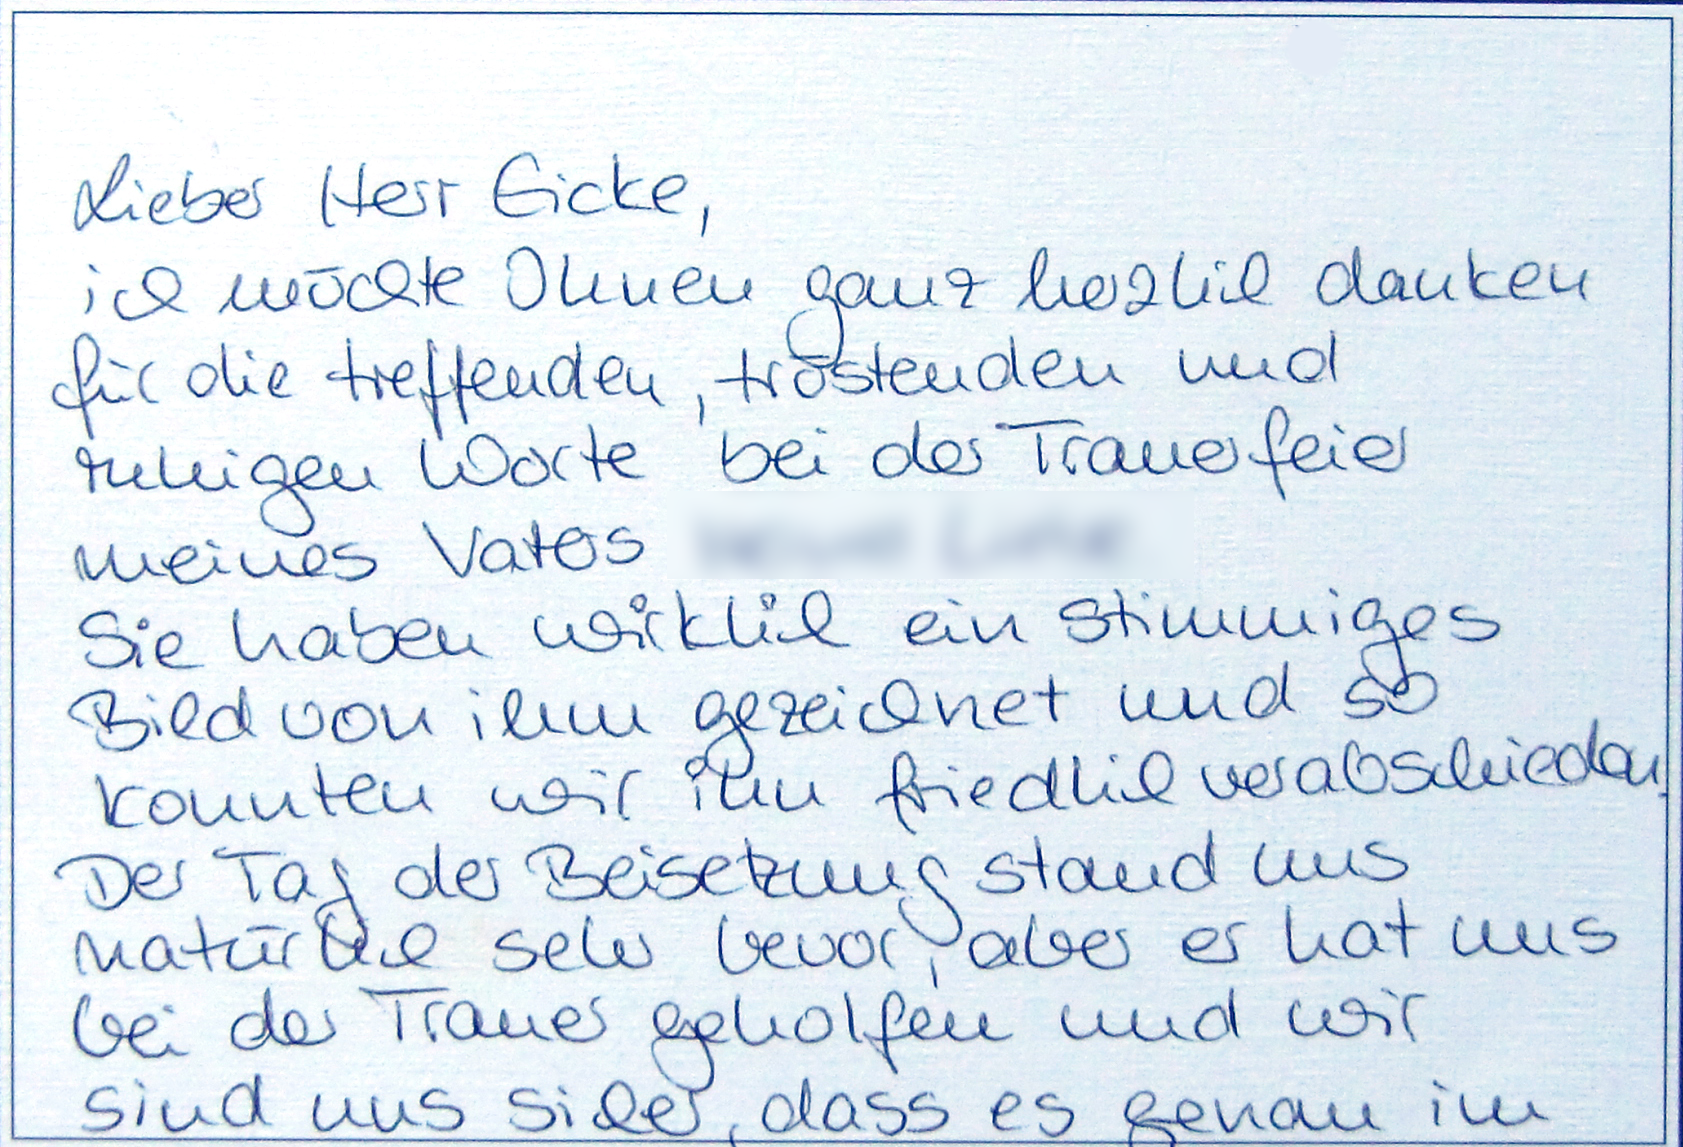 Lieber Herr Eicke,
ich möchte Ihnen ganz herzlich danken
für die treffenden, tröstenden und
ruhigen Worte bei der Trauerfeier
meines Vaters
Sie haben wirklich ein stimmiges
Bild von ihm gezeichnet und so
konnten wir ihn friedlich verabschieden.
Der Tag der Beisetzung stand uns
natürlich sehr bevor, aber er hat uns
bei der Trauer geholfen und wir
sind uns sicher, dass es genau im